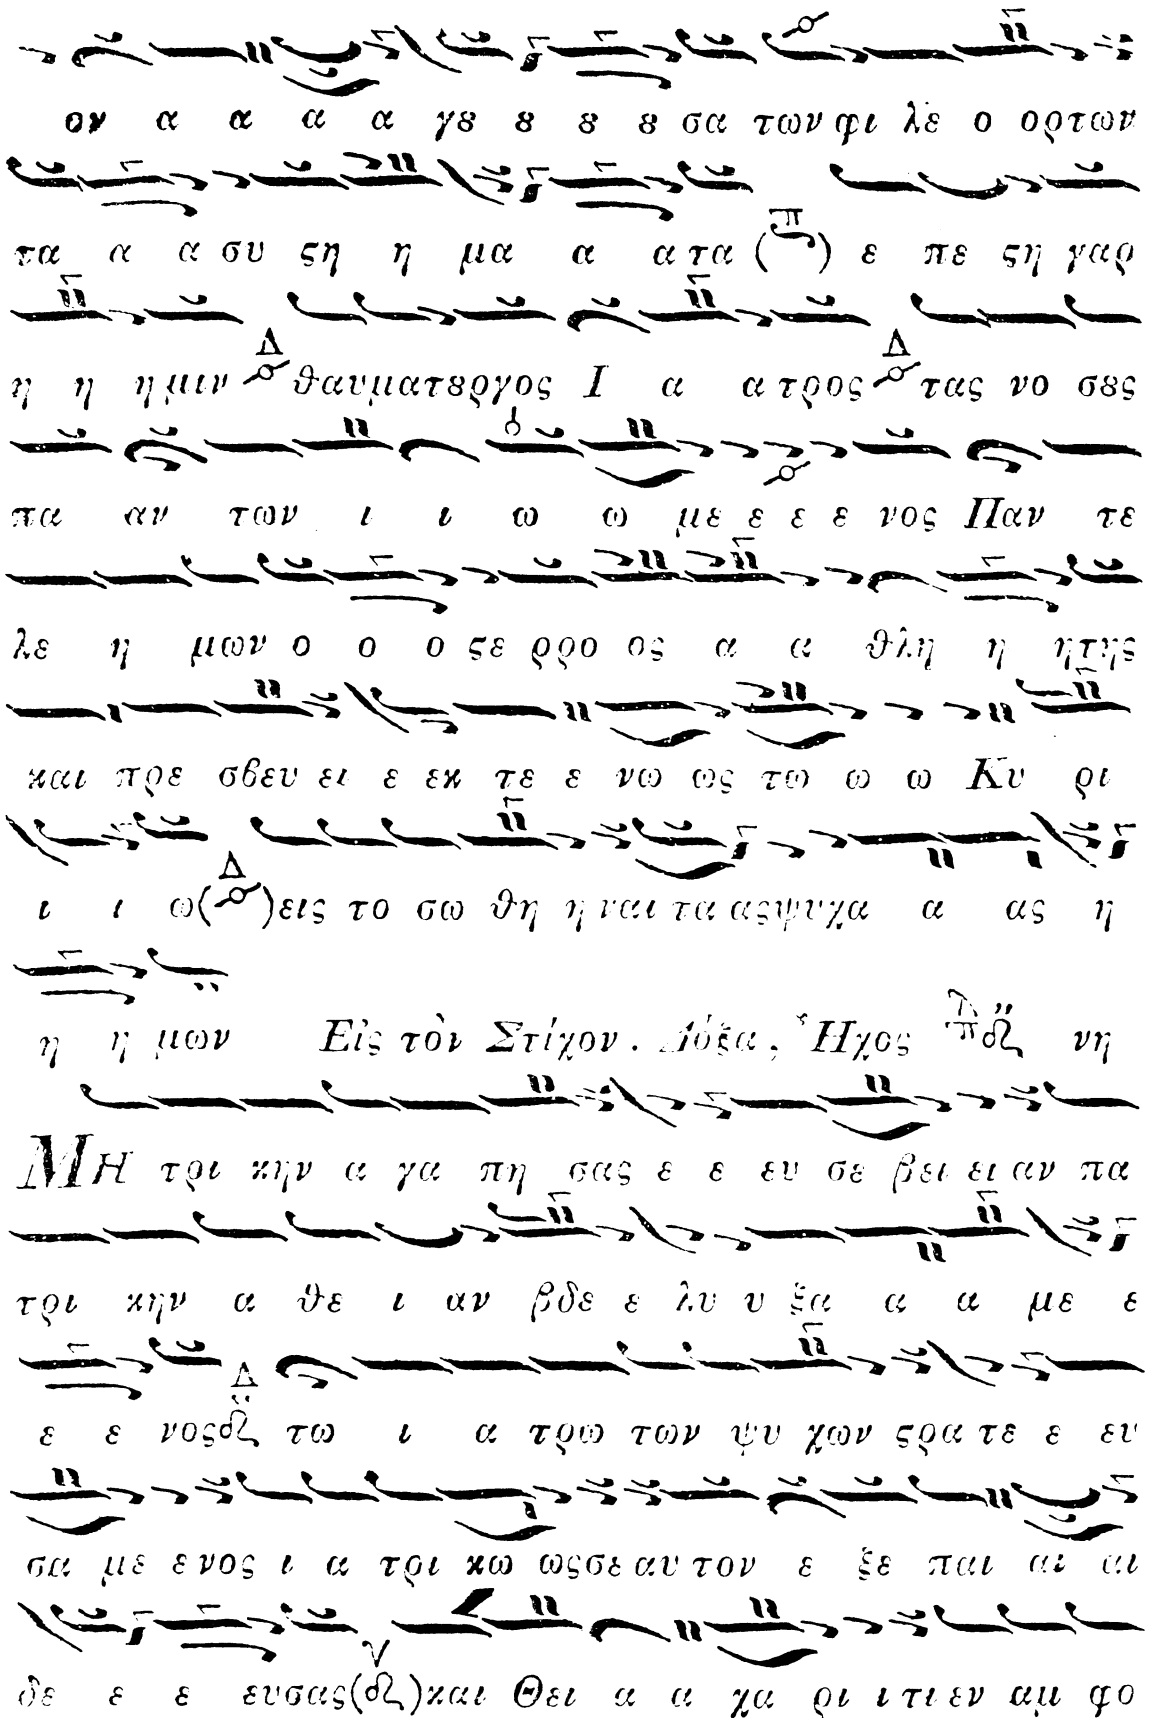 ον α α α α γȣ ȣ ȣ ȣ σα των φι λε ο ορτων
τα α α συ ϛη η μα α α τα (π) ε πε ϛη γαρ
η η η μιν Δ θαυματȣργος Ι α α τρος Δ τας νο σȣς
πα αν των ι ι ω ω με ε ε ε νος Παν τε
λε η μων ο ο ο ϛε ρρο ος α α θλη η ητης
και πρε σβευ ει ε εκ τε ε νω ως τω ω ω Κυ ρι
ι ι ω(Δ)εις το σω θη η ναι τα αςψυχα α ας η
η η μων Εἰς τὸν Στίχον. Δόξα, Ἦχος π νη
ΜΗ τρι κην α γα πη σας ε ε ευ σε βει ει αν πα
τρι κην α θε ι αν βδε ε λυ υ ξα α α με ε
ε ε νος Δ τω ι α τρω των ψυ χων ϛρα τε ε ευ
σα με ε νος ι α τρι κω ωςσε αυ τον ε ξε παι αι αι
δε ε ε ευσας(ν)και Θει α α χα ρι ι τι εν αμ φο